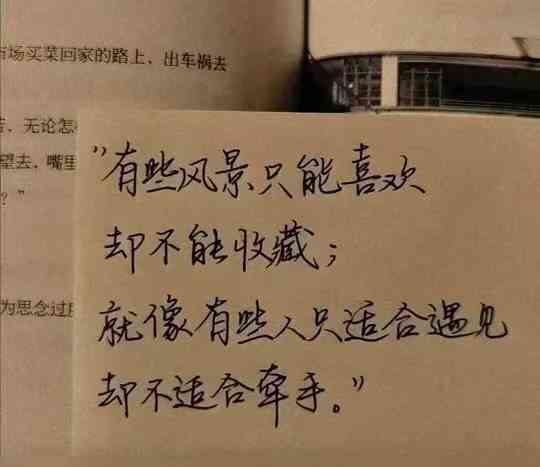 市场买菜回家的路上，出车祸去
无论怎
望去，嘴里
？”
为思念过
“有些风景只能喜欢
却不能收藏；
就像有些人只适合遇见
却不适合牵手。”